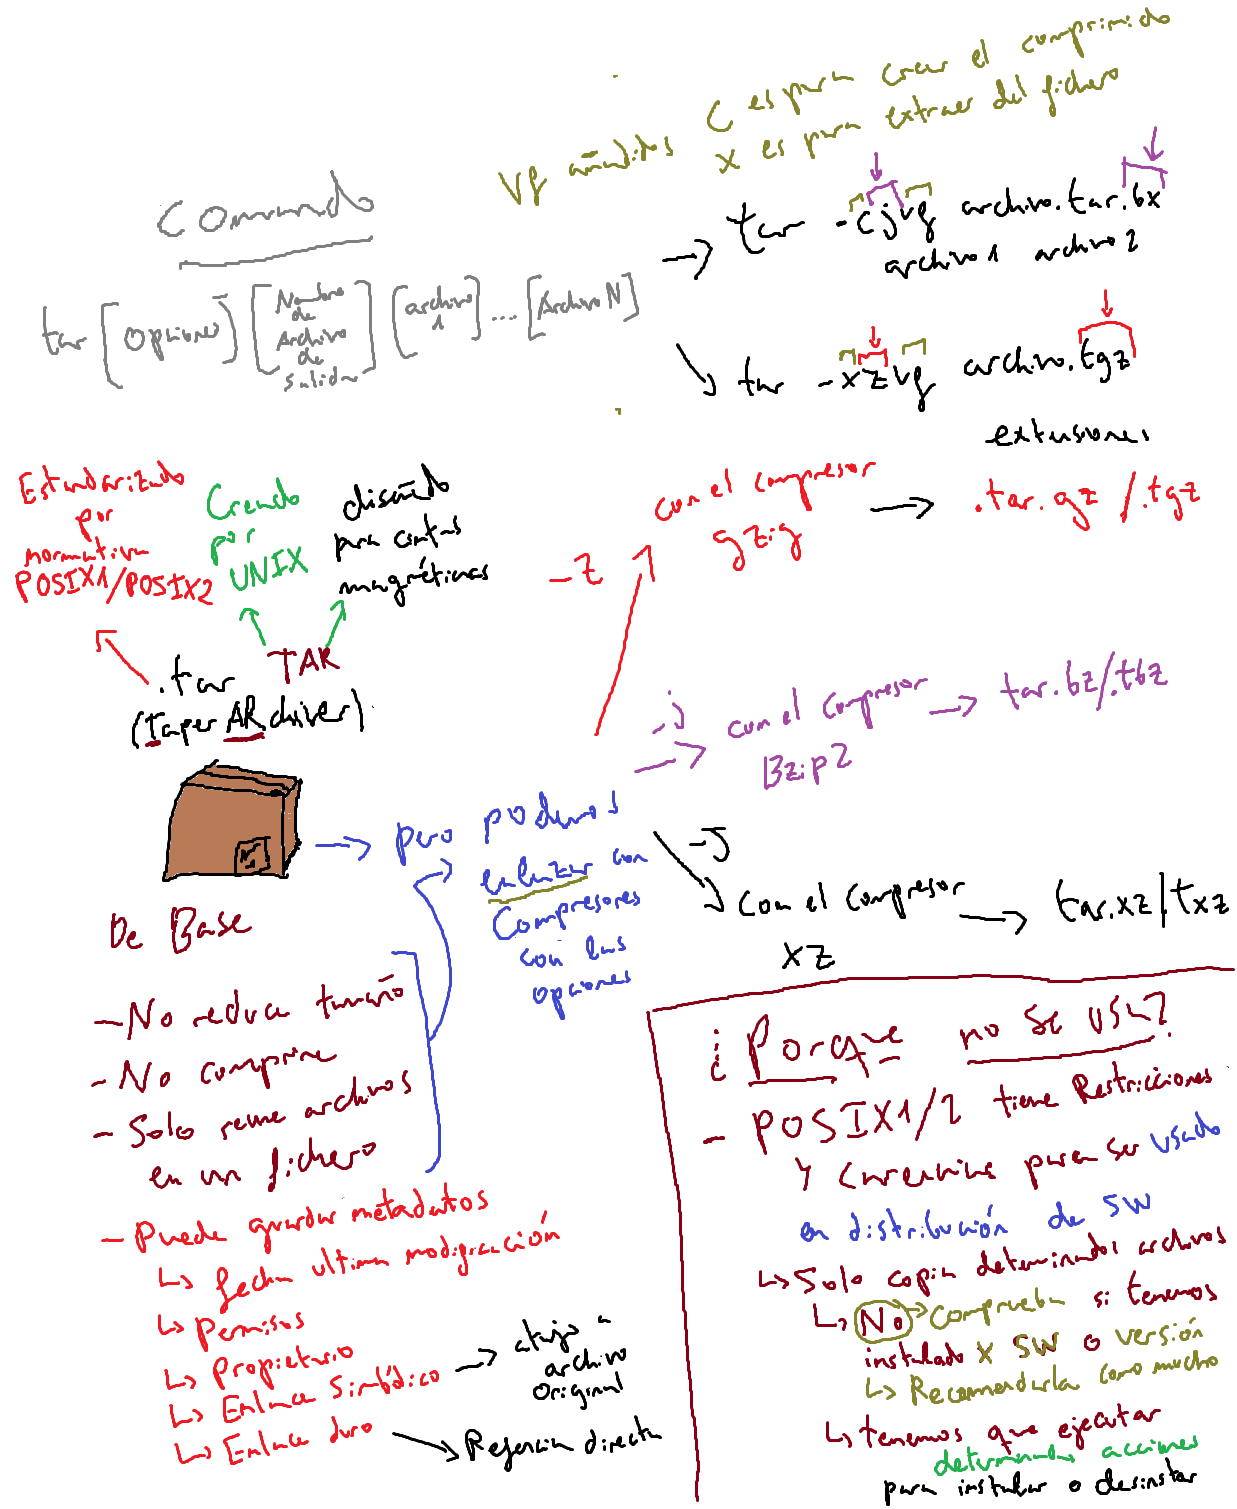 C es para crear el comprimido
Vf añadidos X es para extraer del fichero
Comando
tar [Opciones] [Nombre de Archivo de Salida] [archivo 1] ... [Archivo N]
tar -cjvf archivo.tar.bx
archivo1 archivo2
tar -xzvf archivo.tgz
extensiones
Estandarizado
por
normativa
POSIX1/POSIX2
Creado
por
UNIX
diseñado
para cintas
magnéticas
.tar TAR
(Taper ARchiver)
-z
con el compresor
gzip
.tar.gz /.tgz
-j
con el compresor
Bzip2
tar.bz/.tbz
pero podemos
enlazar con
Compresores
con las
opciones
-J
con el compresor
xz
tar.xz/.txz
De Base
- No reduce tamaño
- No comprime
- Solo reune archivos
en un fichero
- Puede guardar metadatos
↳ fecha ultima modificación
↳ Permisos
↳ Propietario
↳ Enlace Simbólico → atajo a
archivo
Original
↳ Enlace duro → Referencia directa
¿Porque no se usa?
- POSIX1/2 tiene Restricciones
Y Carencias para ser usado
en distribución de SW
↳ Solo copia determinados archivos
↳ No → Comprueba si tenemos
instalado X SW o versión
↳ Recomendarla como mucho
↳ tenemos que ejecutar
determinadas acciones
para instalar o desinstar